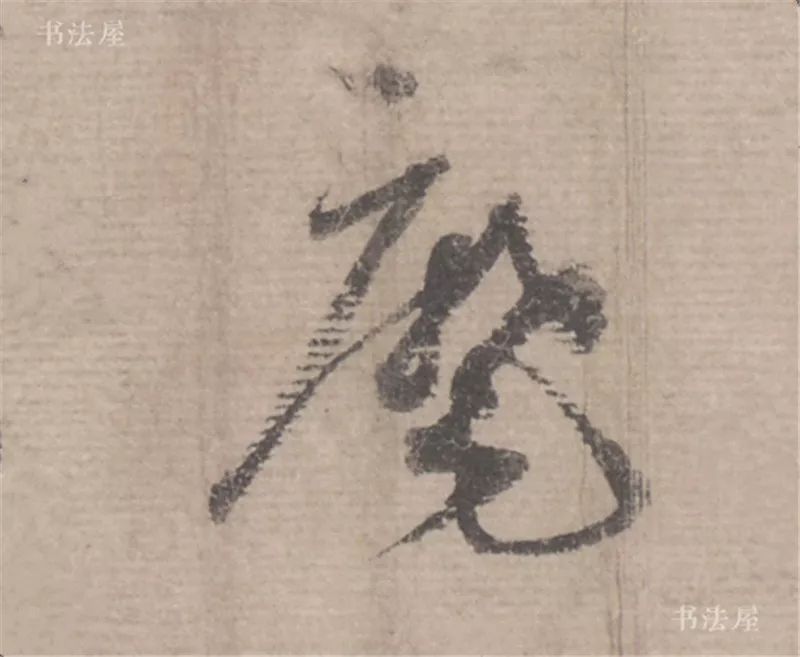 书法屋
麾
书法屋